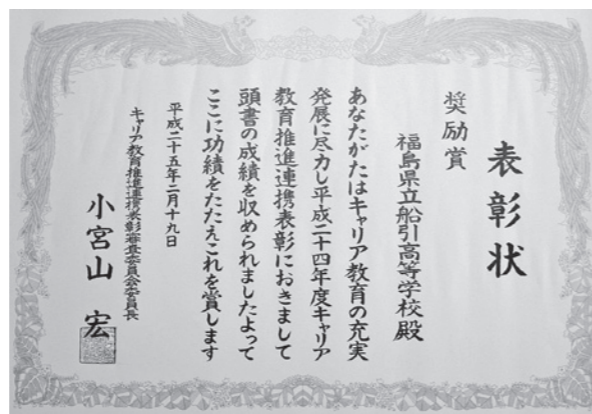 表彰状
奨励賞
福島県立船引高等学校殿
あなたがたはキャリア教育の充実
発展に尽力し平成二十四年度キャリア
教育推進連携表彰におきまして
頭書の成績を収められましたよって
ここに功績をたたえこれを賞します
平成二十五年二月十九日
キャリア教育推進連携表彰審査委員会委員長
小宮山 宏